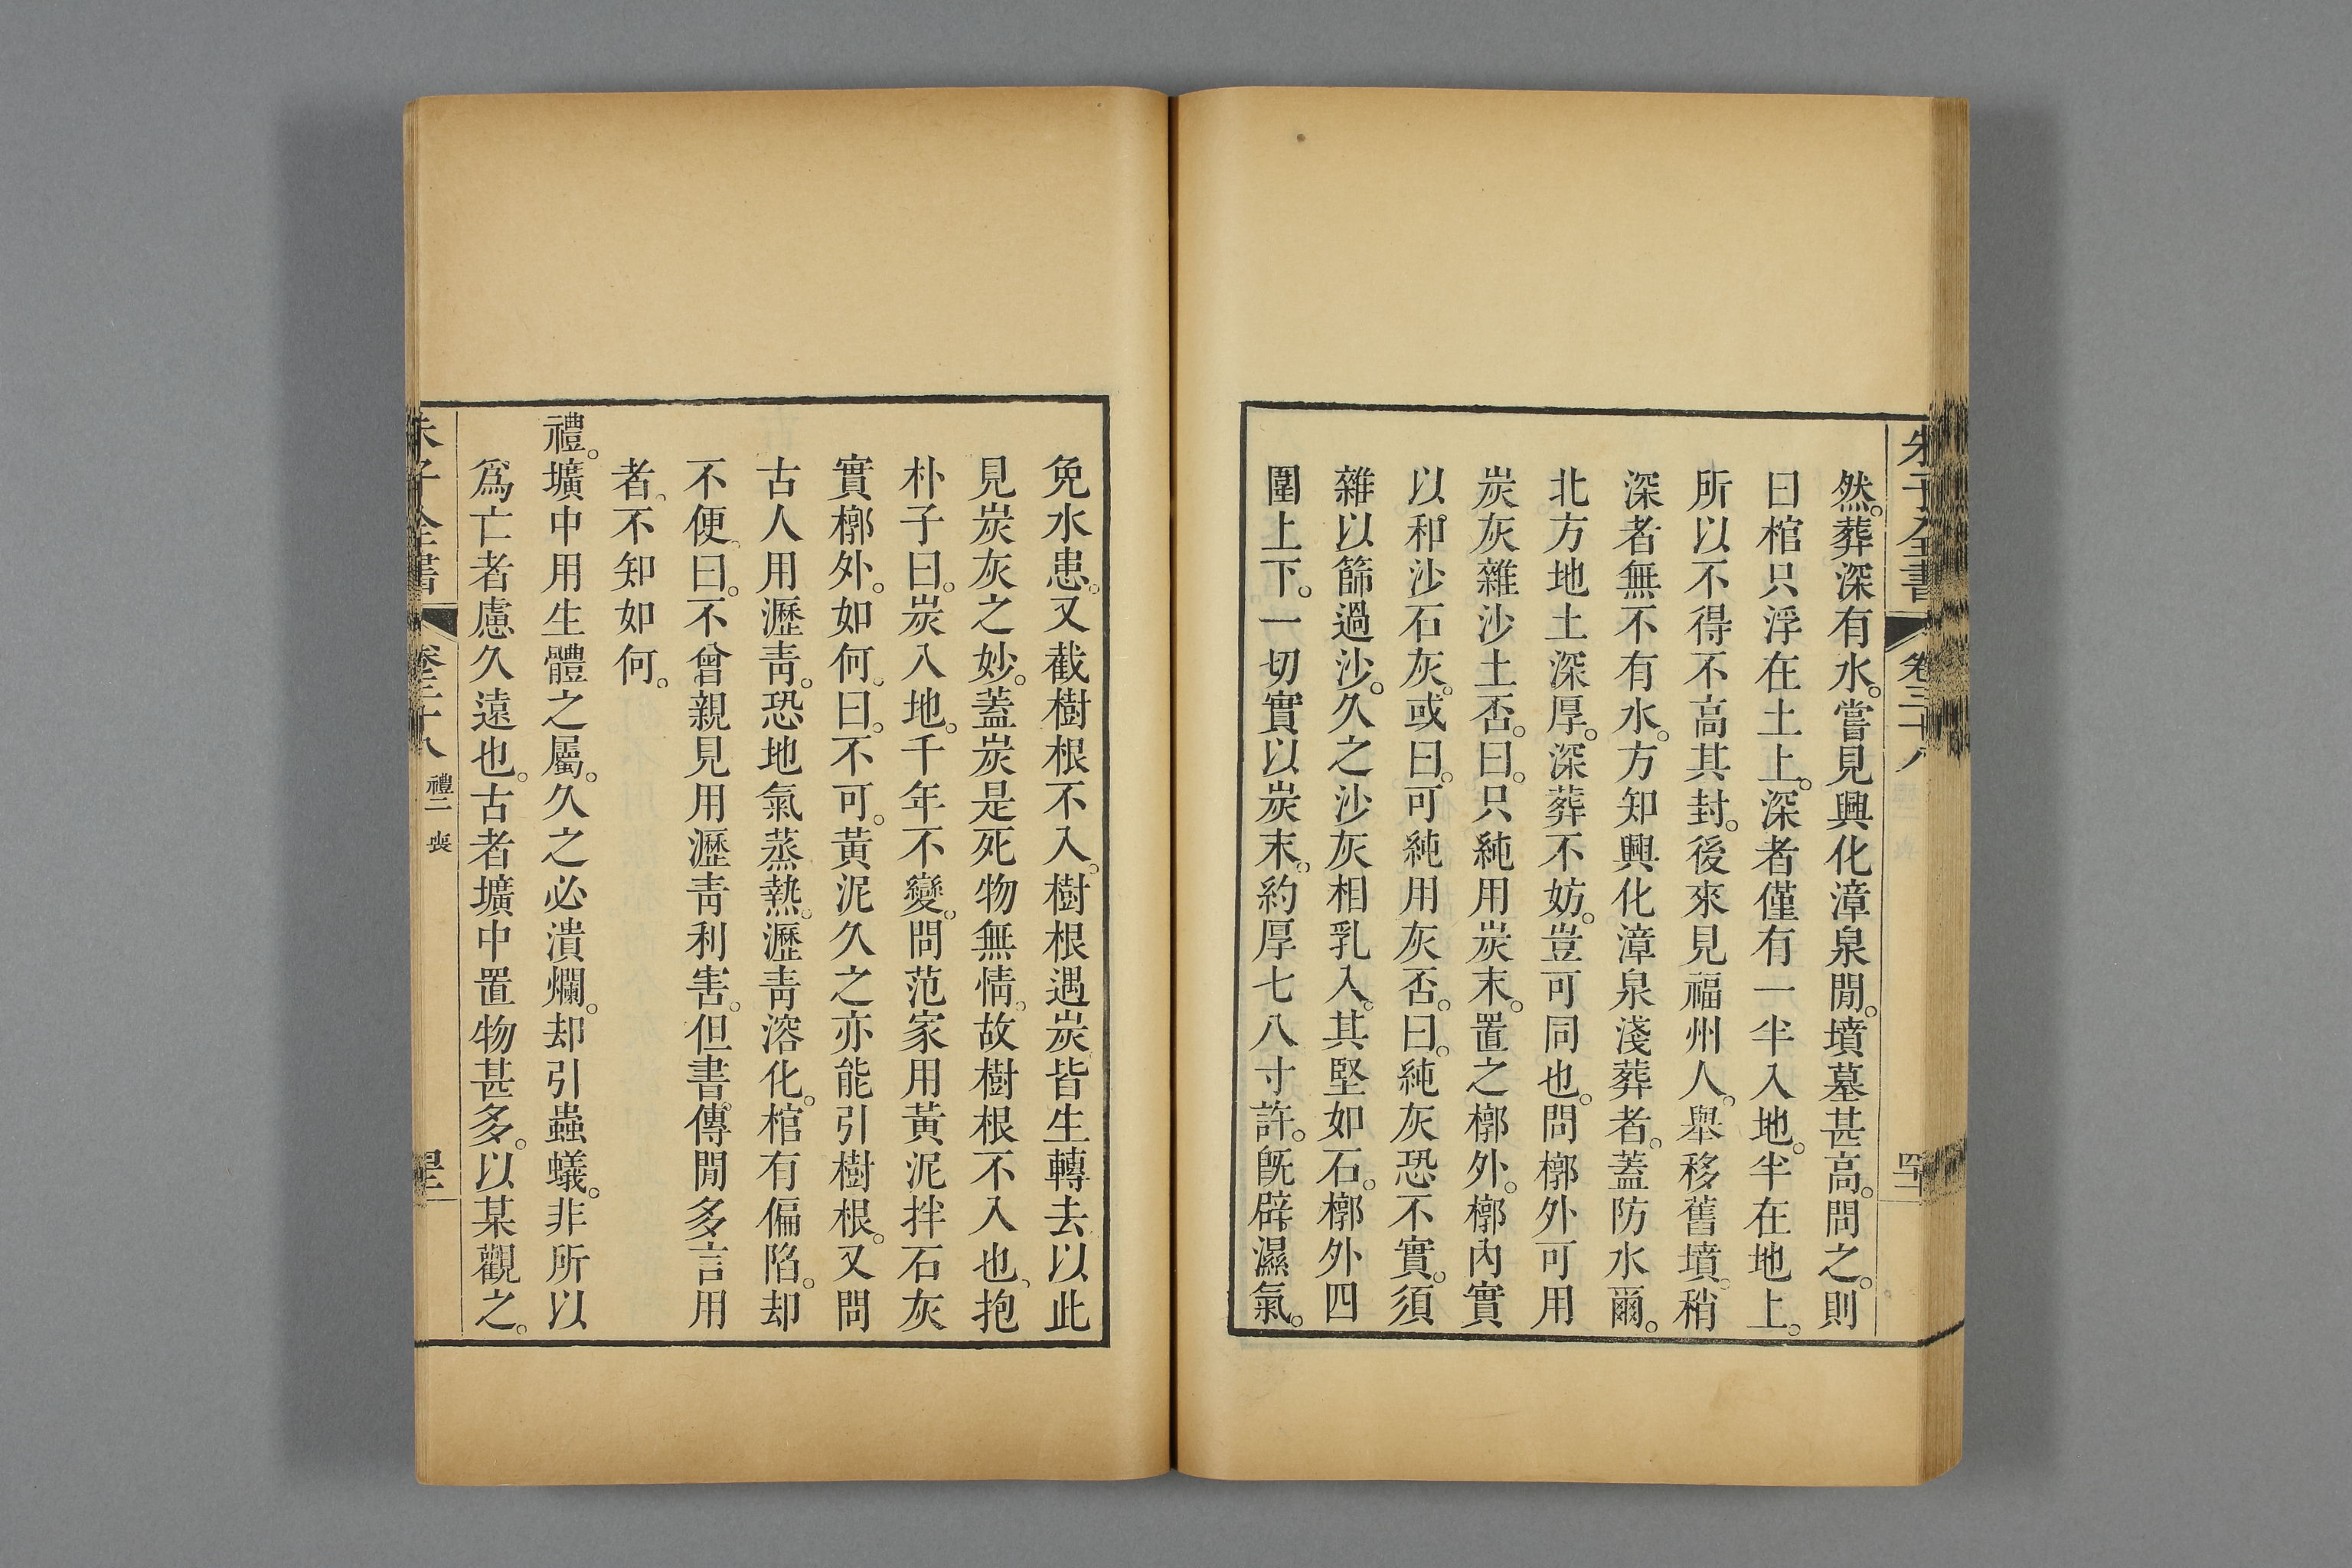 朱子全書 卷三十八
然。葬深有水。嘗見興化漳泉閒。墳墓甚高。問之。則
曰棺只浮在土上。深者僅有一半入地。半在地上。
所以不得不高其封。後來見福州人。舉移舊墳。稍
深者無不有水。方知興化漳泉淺葬者。蓋防水爾。
北方地土深厚。深葬不妨。豈可同也。問槨外可用
炭灰雜沙土否。曰。只純用炭末。置之槨外。槨內實
以和沙石灰。或曰。可純用灰否。曰。純灰恐不實。須
雜以篩過沙。久之沙灰相乳入。其堅如石。槨外四
圍上下。一切實以炭末。約厚七八寸許。旣辟濕氣。
免水患。又截樹根不入。樹根遇炭皆生轉去以此
見炭灰之妙。蓋炭是死物無情。故樹根不入也、抱
朴子曰。炭入地。千年不變。問范家用黃泥拌石灰
實槨外。如何。曰。不可。黃泥久之亦能引樹根。又問
古人用瀝靑。恐地氣蒸熱。瀝靑溶化。棺有偏陷。却
不便、曰。不曾親見用瀝靑利害。但書傳閒多言用
者、不知如何。
禮。壙中用生體之屬。久之必潰爛。却引蟲蟻。非所以
爲亡者慮久遠也。古者壙中置物甚多。以某觀之。
朱子全書 卷三十八 禮二 喪